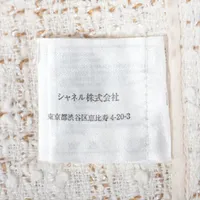 シャネル株式会社
東京都渋谷区恵比寿4-20-3